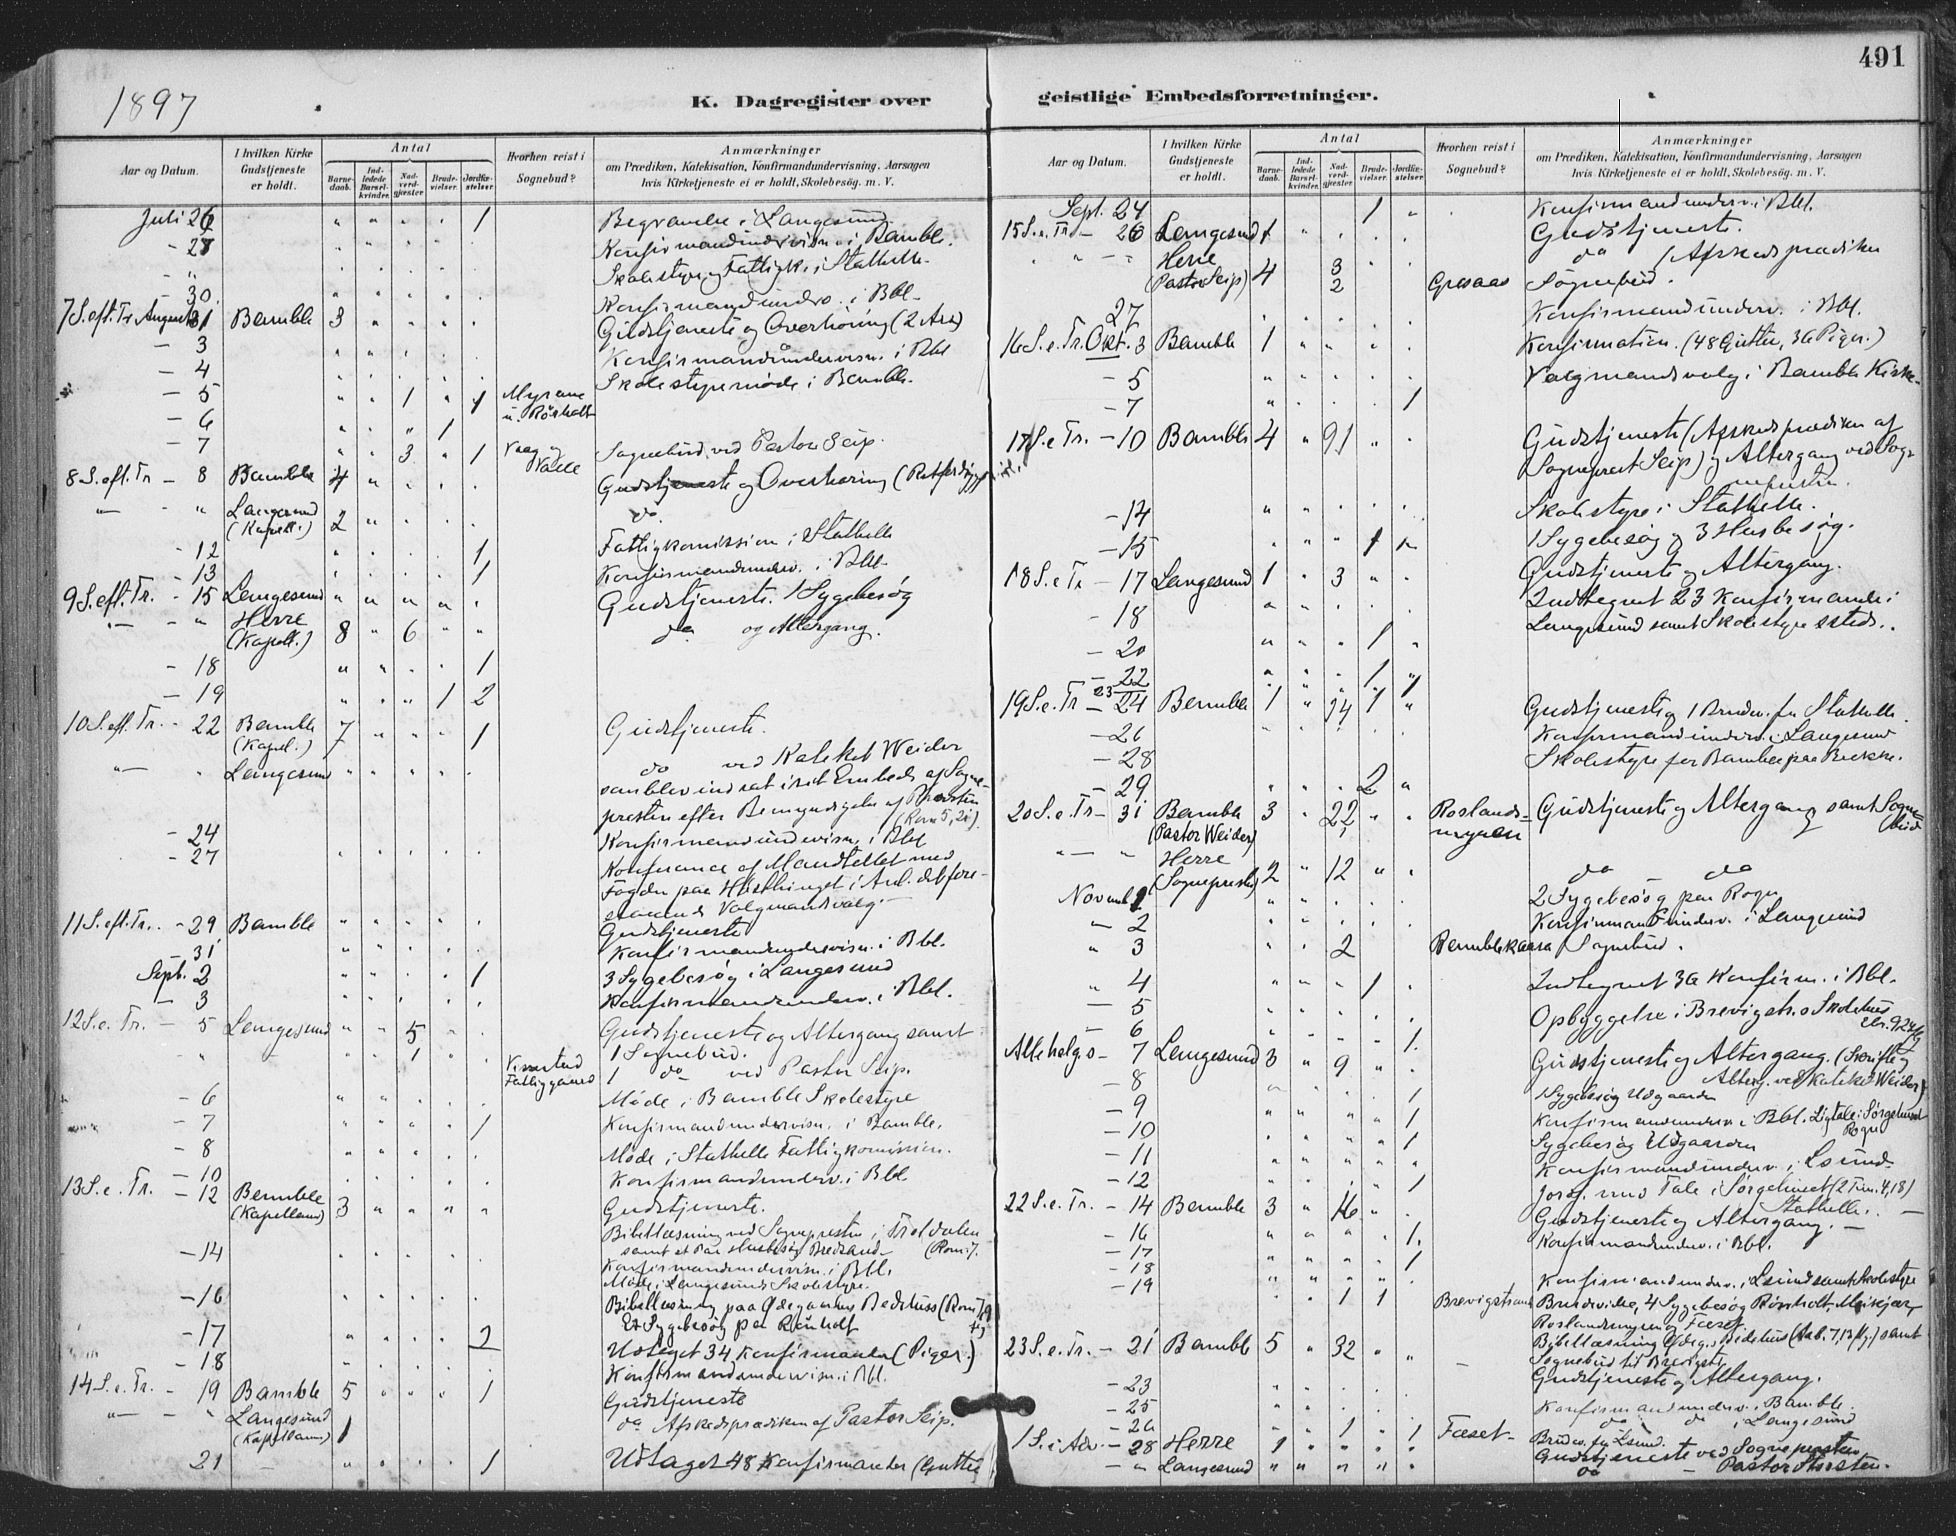 491
1897
K. Dagregister over geistlige Embedsforretninger.
Aar og Datum.
I hvilken Kirke Gudstjeneste er holdt.
Antal
Barnedaab.
Indledede Barselkvinder.
Nadverdgjester
Brudevielser.
Jordfæstelser
Hvorhen reist i Sognebud?
Anmærkninger
om Prædiken, Katekisation, Konfirmandundervisning, Aarsagen
hvis Kirketjeneste ei er holdt, Skolebesøg. m. V.
Juli 26 " " " " 1 Begravelse i Langesund
- 28 Konfirmandundervisn. i Bamble.
- " Skolestyre og Fattigk. i Stathelle.
- 30 Konfirmandunderv. i Bbl.
7 S. eft. Tr. August 1 Bamble 3 Gudstjeneste og Overhøring (2 Art)
- 3 Konfirmandundervisn. i Bbl
- 4 Skolestyremøde i Bamble.
- 5 1 " 1 Myrene u. Rørholt
- 6 1
- 7 3 " 1 Sognebud ved Pastor Seip.
8 S. eft. Tr - 8 Bamble 4 Gudstjeneste og Overhøring
" " Langesund (Kapell.) 2 do.
- 12 1 Fattigkomission i Stathelle
- 13 1 Konfirmandunderv. i Bbl.
9 S. eft. Tr. - 15 Langesund " " " " Gudstjeneste. 1 Sygebesøg
" " Herre (Kapell.) 8 " 6 " " do og Altergang.
- 18 1
- 19 1 2
10 S. eft. Tr. - 22 Bamble (Kapel.) 7 1 Gudstjeneste.
" " Langesund do ved Kateket Weider
som blev indsat i sit Embede af Sogne-
presten efter Bemyndigelse af Provsten
(Rom 5, 2)
- 24 Konfirmandundervisn. i Bbl
- 27 Konferance af Mandtallet med
Fogden paa i Anl. det fore-
staaende Valgmandsvalg.
11 S. eft. Tr. - 29 Bamble Gudstjeneste
31 Konfirmandundervisn. i Bbl.
Sept. 2 1 3 Sygebesøg i Langesund
- 3 Konfirmandunderv. i Bbl.
12 S. e. Tr. - 5 Langesund " " 5 Gudstjeneste og Altergang samt
1 Sognebud.
" 1 Fattiggaard 1 do ved Pastor Seip.
- 6 Møde i Bamble Skolestyre
- 7 1 Konfirmandundervisn. i Bamble.
- 8 Møde i Stathelle Fattigkomission.
- 10 Konfirmandunderv. i Bbl.
13 S. e. Tr. - 12 Bamble (Kapellanen) 3 Gudstjeneste.
Bibellæsning ved Sognepresten i Trosdalen
samt et Par Husbesøg (Rom. 7.
- 14 Konfirmandundervisn. i Bbl.
Møde i Langesunds Skolestyre.
- 16 Bibellæsning paa Ødegaardens Bedehus (Rom 7, 9 fg
Et Sygebesøg paa Rønholt
- 17 2 Udtaget 34 Konfirmander (Piger.)
- 18 Konfirmandundervisn. i Bbl.
14 S. e. Tr. - 19 Bamble 5 1 Gudstjeneste
" " Langesund (Kapellanen) 1 do Afskedsprædiken af Pastor Seip.
21 1 Udtaget 48 Konfirmander (Gutter)
Aar og Datum.
I hvilken Kirke Gudstjeneste er holdt.
Antal
Barnedaab.
Indledede Barselkvinder.
Nadverdgjester
Brudevielser.
Jordfæstelser
Hvorhen reist i Sognebud?
Anmærkninger
om Prædiken, Katekisation, Konfirmandundervisning, Aarsagen
hvis Kirketjeneste ei er holdt, Skolebesøg. m. V.
Sept. 24 1 " Konfirmandunderv. i Bbl.
15 S. e. Tr. - 26 Langesund 1 Gudstjeneste.
" " Herre (Pastor Seip) 4 3 do (Afskedsprædiken
2 Grasaas Sognebud.
27 Konfirmandunderv. i Bbl.
16 S. e. Tr. Okt. 3 Bamble 1 Konfirmation. (48 Gutter, 36 Piger.)
- 5 Valgmandsvalg i Bamble Kirke.
- 7 1
17 S. e Tr. - 10 Bamble 4 " 91 Gudstjeneste (Afskedsprædiken af
Sogneprest Seip) og Altergang ved Sogne-
presten.
- 14 Skolestyre i Stathelle.
- 15 1 1 1 Sygebesøg og 3 Husbesøg.
18 S. e Tr - 17 Langesund 1 " 3 Gudstjeneste og Altergang.
- 18 Indtegnet 23 Konfirmander i
Langesund samt Skolestyre ssteds.
- 20 1
- 22 1 "
23 1
19 S. e. Tr - 24 Bamble 1 " 14 1 " Gudstjeneste og 1 Brudev. fra Stathelle.
- 26 Konfirmandunderv. i Langesund
- 28 Skolestyre for Bamble paa Bukke.
- 29 2 "
20 S. e. Tr - 31 Bamble (Pastor Weider) 3 " 22 Roslands-myren Gudstjeneste og Altergang samt Sognebud
1
" " Herre (Sognepresten) 2 " 12 do do
Novemb. 1 2 Sygebesøg paa Rogn
- 2 Konfirmandunderv. i Langesund
" 3 2 Sognebud.
" 4 1 Indtegnet 36 Konfirm. i Bbl.
- 5 Opbyggelse i Brevigstr.s Skolehus
- 6 1.
Allehelgs - 7 Langesund 3 " 9 Gudstjeneste og Altergang. (Skrifte og
Alterg. ved Kateket Weider)
- 8 1 Sygebesøg Ødgaarden
- 9 1 Konfirmandunderv. i Bbl. Ligtale i Sørgehuset Rogn
- 10 1 Sygebesøg Ødgaarden
- 11 Konfirmandunderv. i Lsund.
- 12 1 Jordf. med Tale i Sørgehuset (2 Tim. 4, 18)
Stathelle.
22 S. e. Tr. - 14 Bamble 3 " 16 Gudstjeneste og Altergang. -
- 16 1. Konfirmandunderv. i Bbl.
- 17 1
- 18 Konfirmandunderv. i Lsund samt Skolestyre
- 19 1 1 Brevigstrand Brudevielse, 4 Sygebesøg Rønholt, Meikjær,
Roslandsmyren og Fæset
Bibellæsning Ødeg. Bedehus samt
Sognebud til Brevigstr.
23 S. e. Tr. - 21 Bamble 5 " 32 Gudstjeneste og Altergang.
- 23 Konfirmandunderv. i Bamble.
- 25 do do i Langesund
- 26 1 1 Fæset Brudev. fra Lsund.
1 S. i Adv. - 28 Herre 1 Gudstjeneste ved Sognepresten
- " Langesund " " " " " do - Pastor